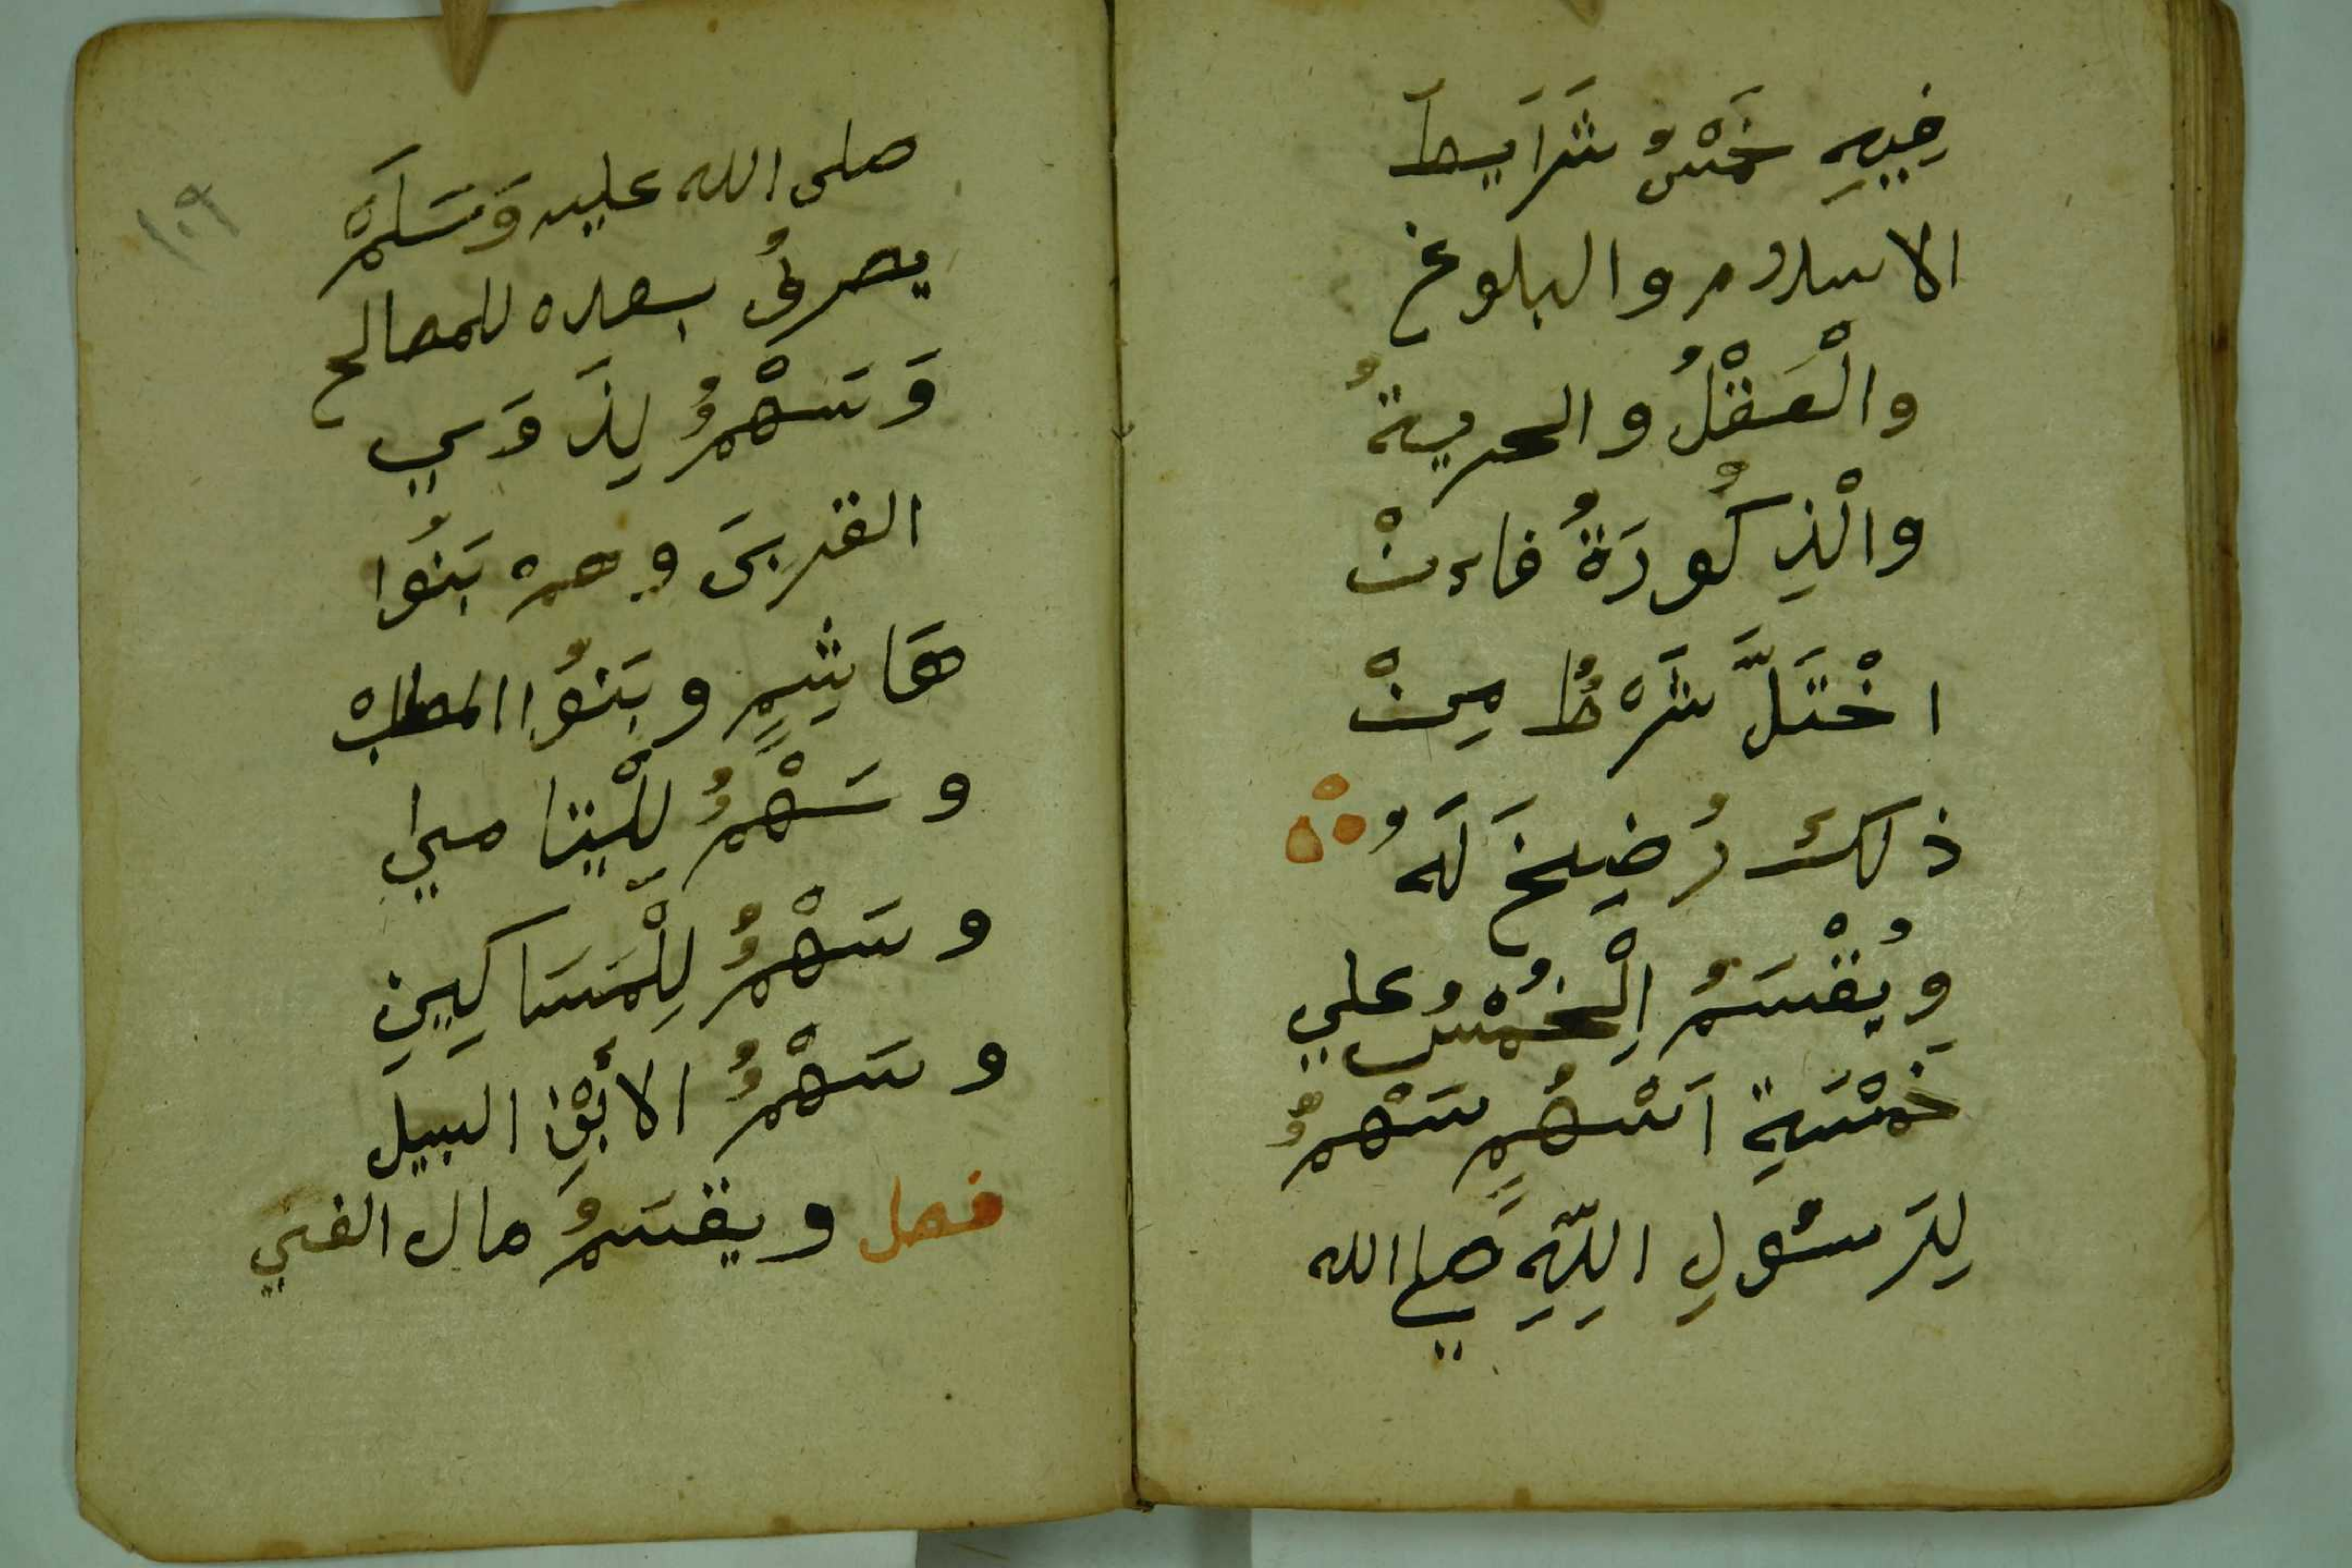 فِيهِ خَمْسُ شَرَايِطَ
الاسلام والبلوغ
والْعَقْلُ والحريةُ
والْذِكُورَةُ فاءنْ
اخْتَلَّ شَرْطُ مِنْ
ذلك رُضِخَ لَهُ
وُيُقْسَمُ الْخُمْسُ علي
خَمْسَةِ اَسْهُمٍ سَهْمٌ
لِرَسُولِ اللّهِ صلي الله
١٠٩
صلى الله عليه وَسَلَمْ
يصرفُ بعده للمصالح
وَسَهْمٌ لِذَوَي
القربىَ وهمْ بَنُوا
هَاشِمٍ وبَنُوا المطلبْ
وسَهْمٌ للْيتامي
وسَهْمٌ لِلْمَسَاكِينِ
وسَهْمٌ الأبْنِ البيل
فصل ويقسَمُ مال الفي